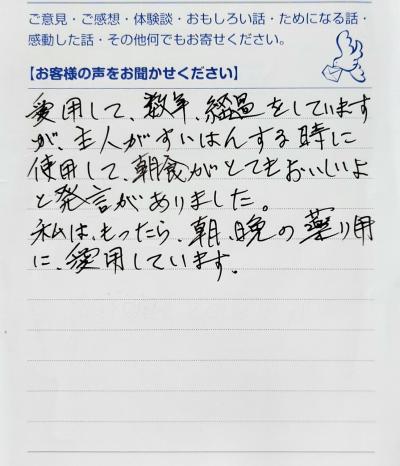 ご意見・ご感想・体験談・おもしろい話・ためになる話・
感動した話・その他何でもお寄せください。
【お客様の声をお聞かせください】
愛用して、数年、経過をしています
が、主人がすいはんする時に
使用して、朝食がとてもおいしいよ
と発言がありました。
私は、もったら、朝、晩の薬り用
に、愛用しています。